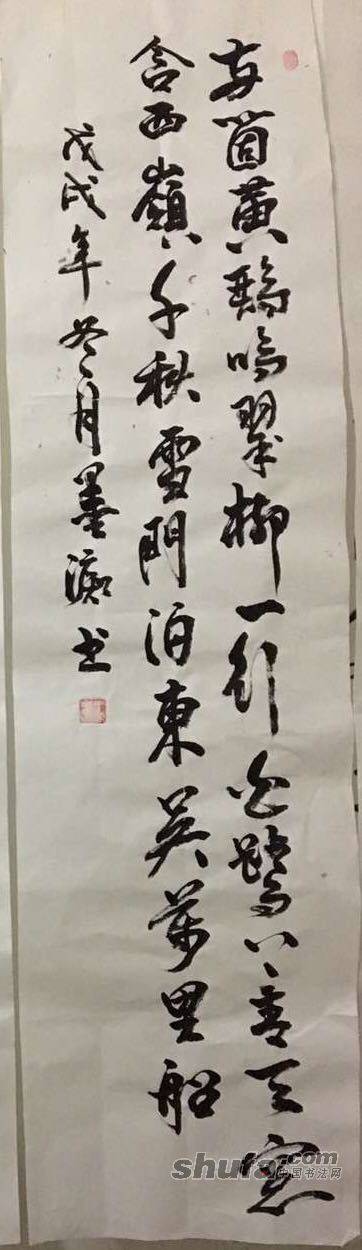 両箇黄鸝鳴翠柳一行白鷺上青天窓
含西嶺千秋雪門泊東吳萬里船
戊戌年冬月墨瀛书
shufa.com
中国书法网